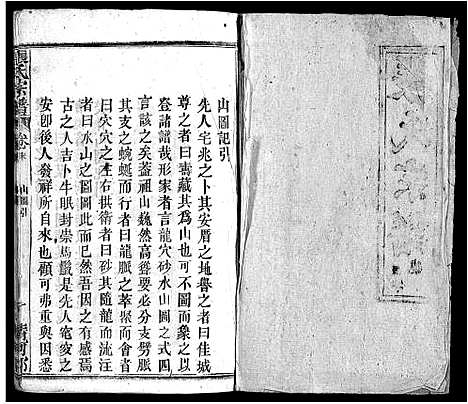 山圖記引
先人宅兆之卜其安厝之地譽之者曰佳城
尊之者曰壽藏其為山也可不圖而象之
登諸譜哉形家者言龍穴砂水山圖之式四
言該之矣蓋祖山巍然高聳要必支劈脈
其支之蜿蜒而行者曰龍脈之萃聚而會者
曰穴穴之左右拱衛者曰砂其隨龍而流注
者曰水山之圖圖此而已然吾因之有感焉
古之人吉卜牛眠封崇馬鬣是先人窀穸之
安即後人發祥所自來也顧可弗重與因悉
氏宗譜
卷末
山圖引
一